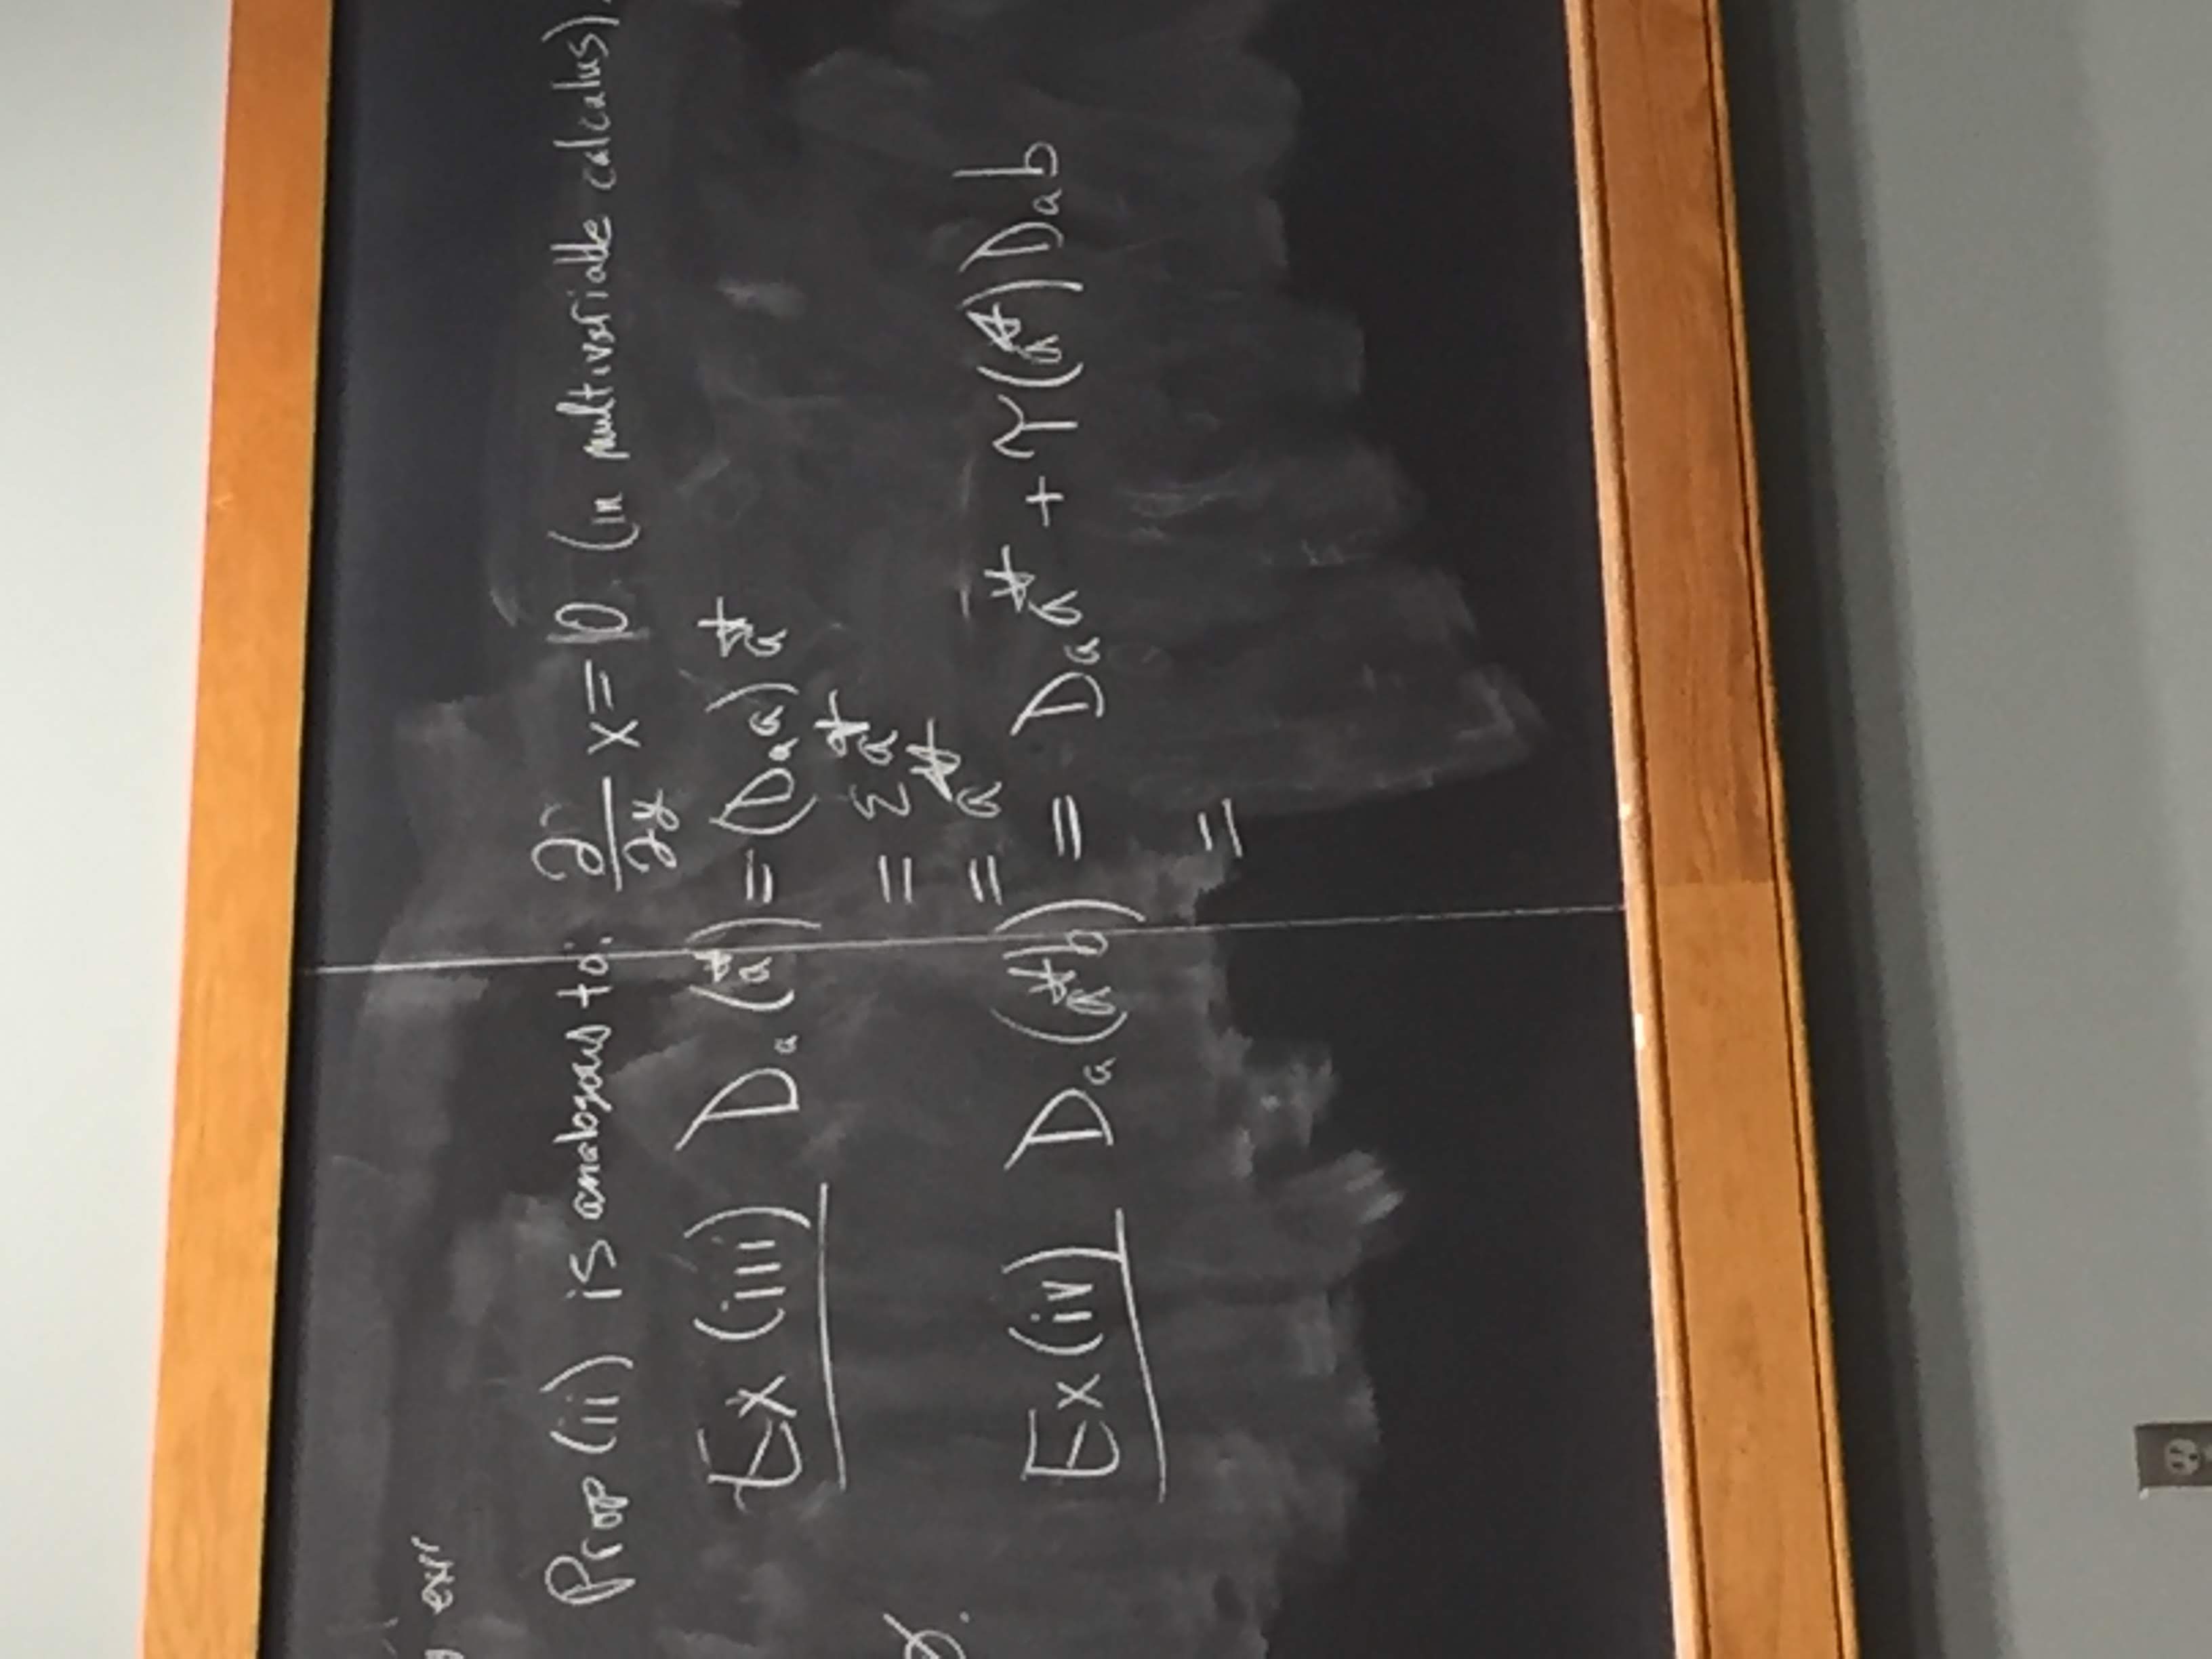 expr
Prop (ii) is analogous to: ∂/∂y x = 0 (in multivariable calculus).
Ex (iii) Dₐ(a*) = (Dₐa) a*
= εa*
= a*
∅.
Ex (iv) Dₐ(a*b) = Dₐa* + τ(a*) Dₐb
=